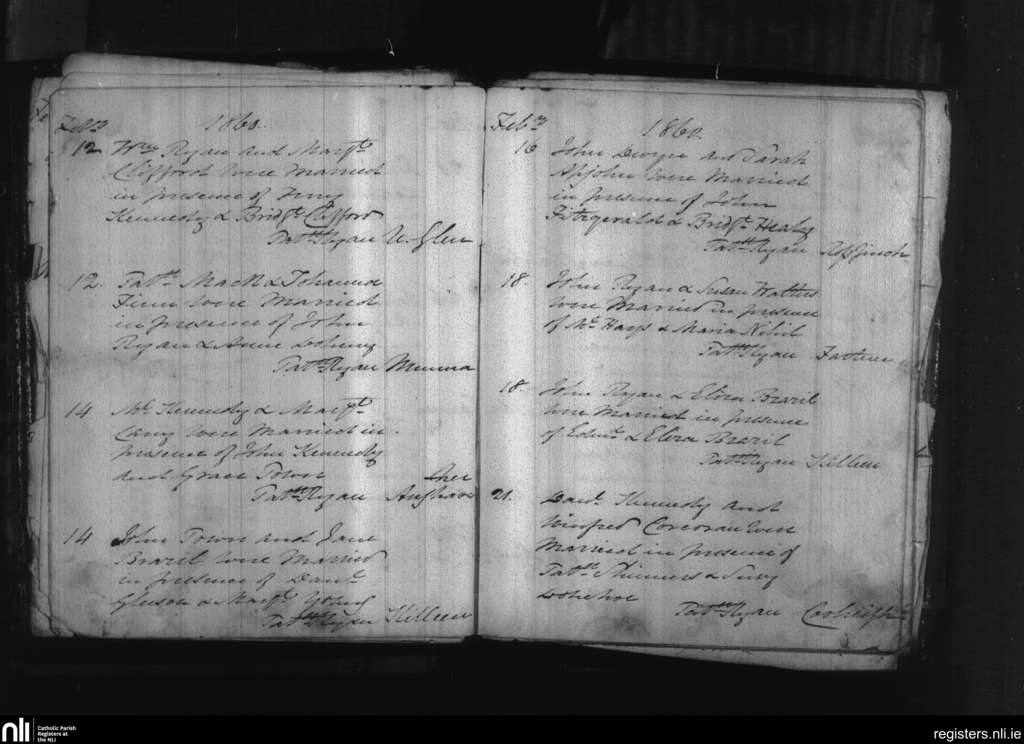 Feb 1860.
12 Wm Ryan and Margt
Clifford were Married
in presence of
Kennedy & Bridgt Clifford
Patk Ryan U. Glen
12. Patk Mack & Johanna
Finn were Married
in presence of John
Ryan & Anne
Patk Ryan
14 Ml Kennedy & Margt
were Married in
presence of John Kennedy
and Grace Town
Patk Ryan
14 John Town and Jane
Brazil were Married
in presence of Danl
Gleeson & Margt Young
Patk Ryan Killeen
Feb 1860.
16 John Dwyer and Sarah
Apjohn were Married
in presence of John
Fitzgerald & Bridgt Healy
Patk Ryan
18. John Ryan & Susan Watters
were Married in presence
of Ml Hays & Maria
Patk Ryan
18. John Ryan & Eliza Brazil
were Married in presence
of Edwd & Eliza Brazil
Patk Ryan Killeen
21. Danl Kennedy and
Winfred Corcoran were
Married in presence of
Patk Skinners &
Patk Ryan
nli Catholic Parish
Registers at
the NLI
registers.nli.ie